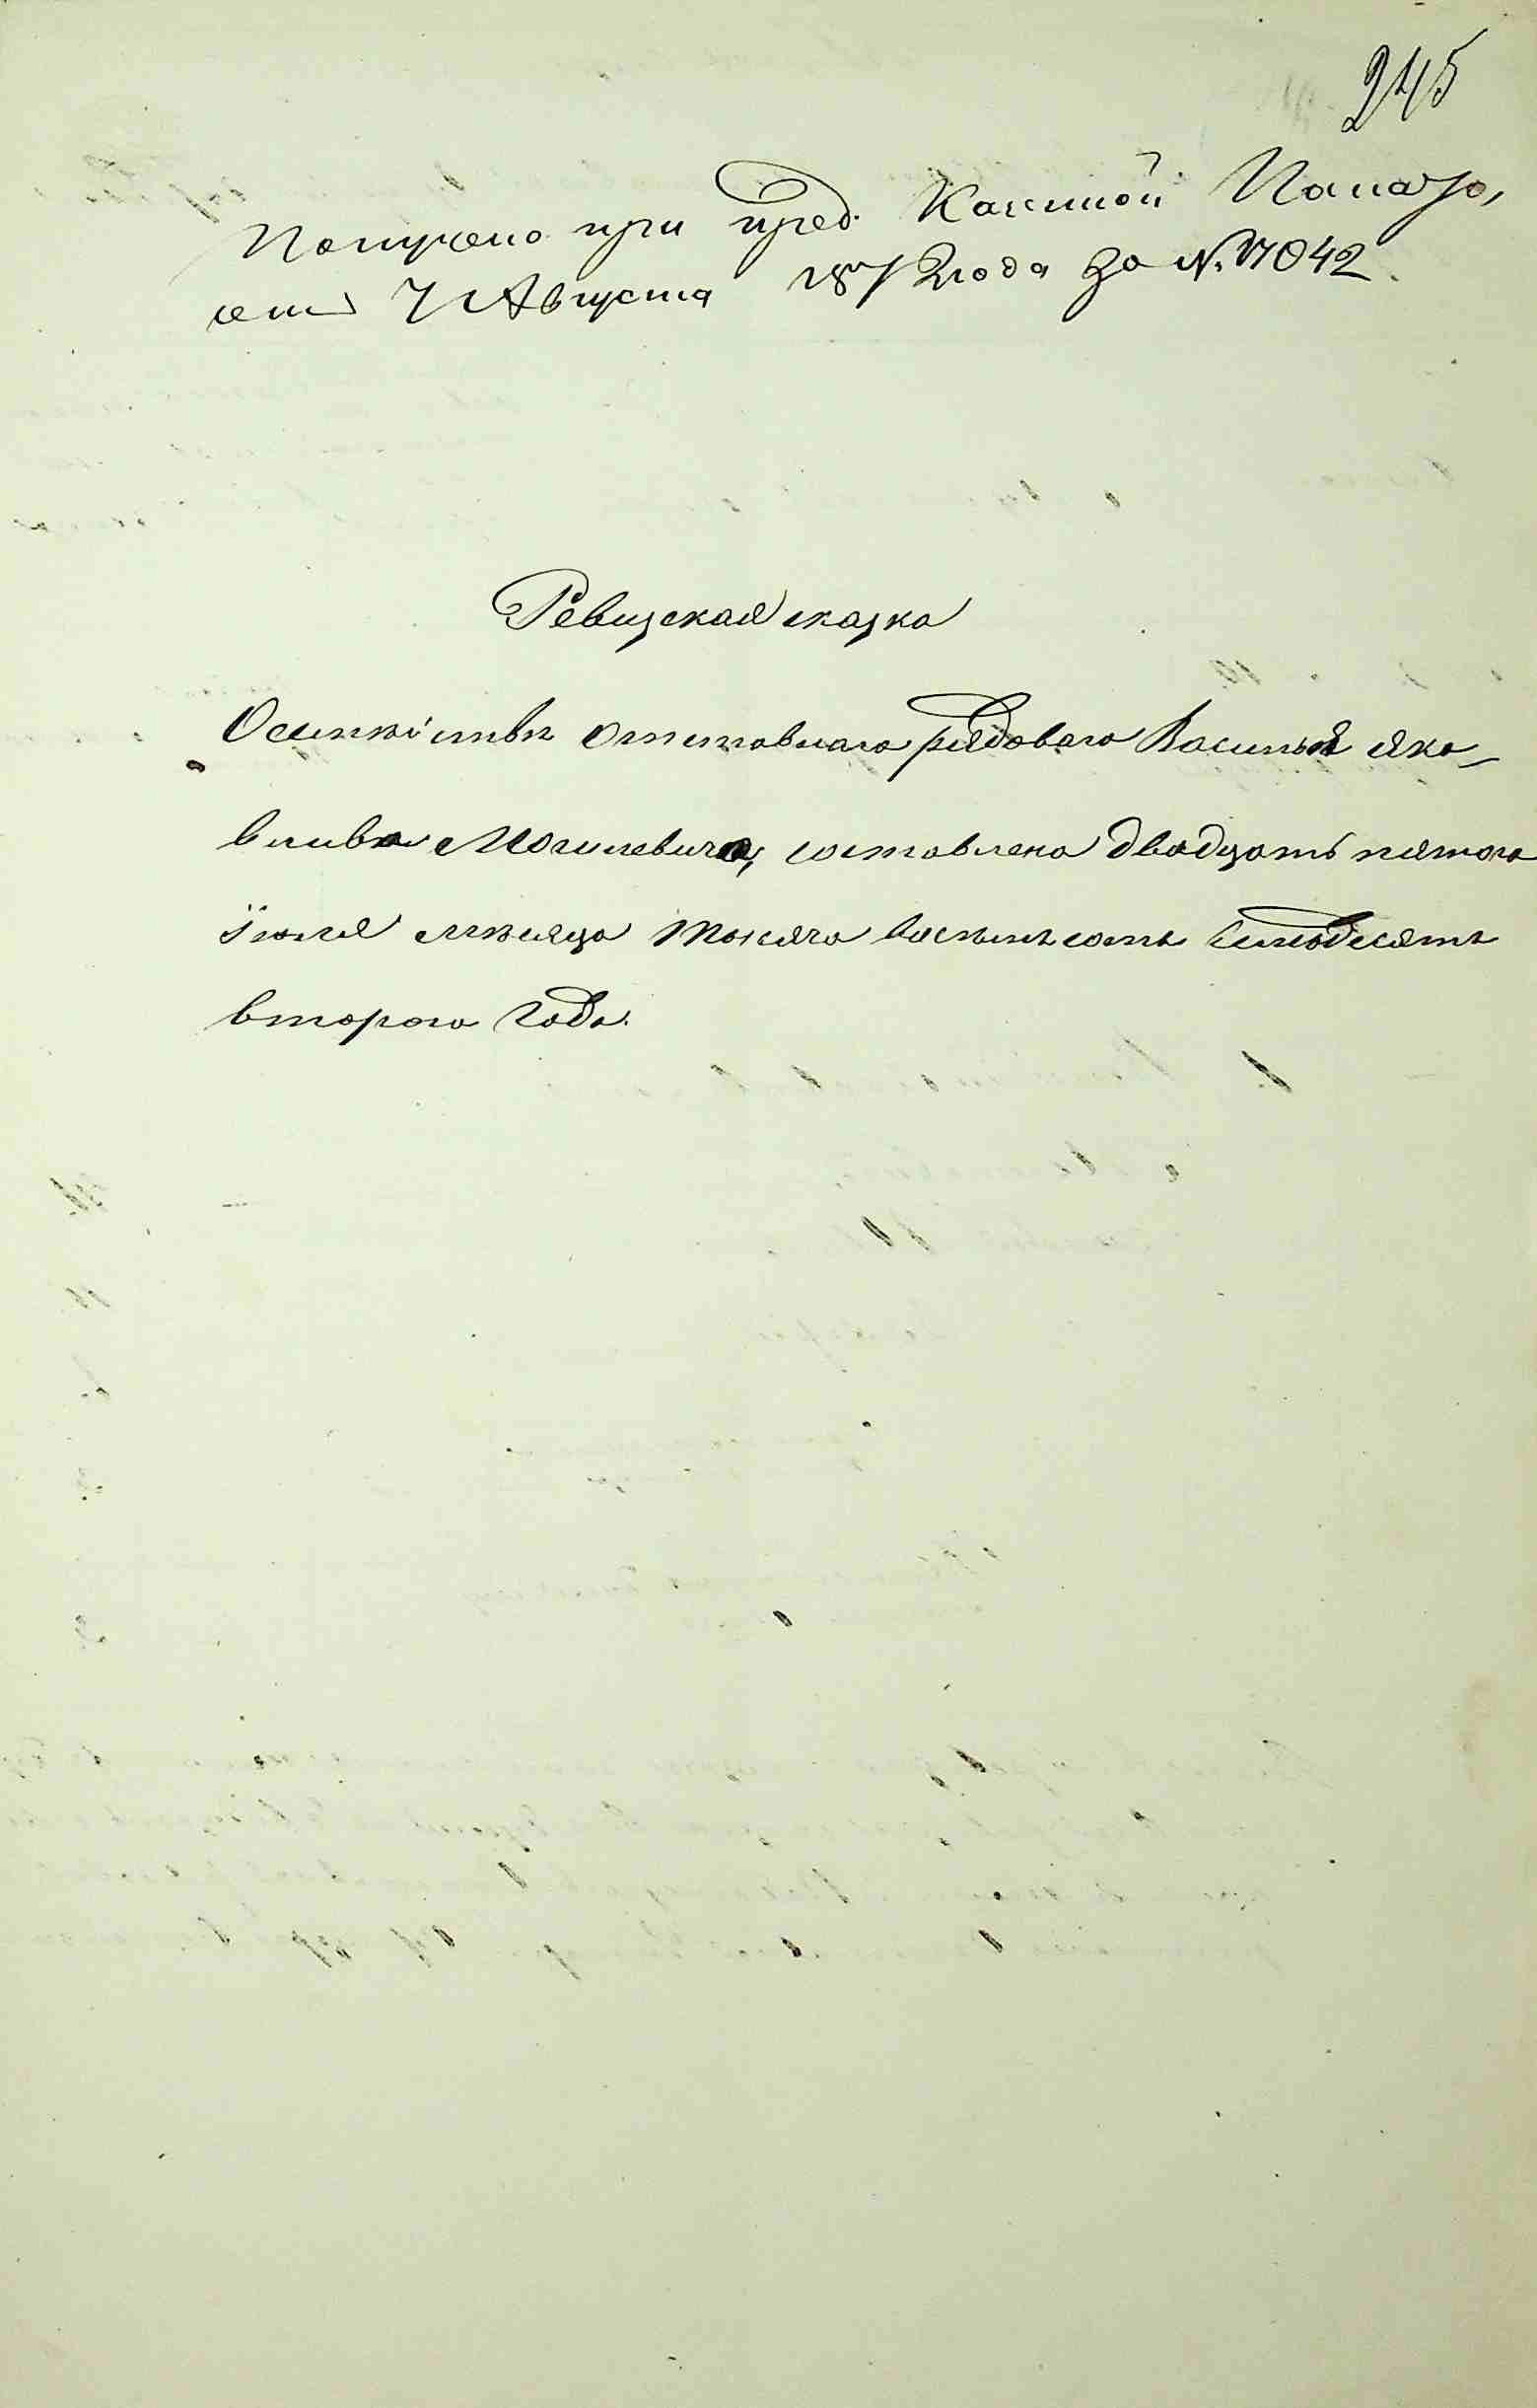 245
Получено при пред. Казенной Палаты,
отъ 7 Августа 1872 года за № 17042.
Ревизская сказка
О семействѣ отставнаго рядоваго Василья Яко-
влева Могилевича, составлена двадцать пятаго
Іюля мѣсяца тысяча восемьсотъ семьдесятъ
втораго года.